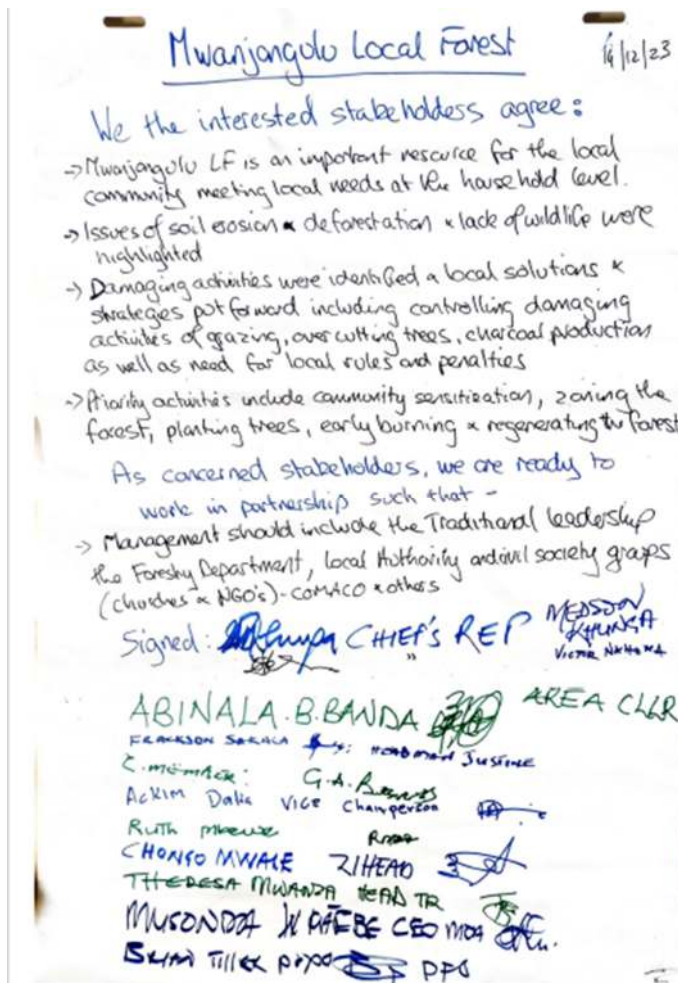 Mwanjangulu Local Forest
14/12/23
We the interested stakeholders agree:
→ Mwanjangulu LF is an important resource for the local
community meeting local needs at the household level.
→ Issues of soil erosion & deforestation & lack of wildlife were
highlighted
→ Damaging activities were identified & local solutions &
strategies put forward including controlling damaging
activities of grazing, over cutting trees, charcoal production
as well as need for local rules and penalties
→ Priority activities include community sensitization, zoning the
forest, planting trees, early burning & regenerating the forest
As concerned stakeholders, we are ready to
work in partnership such that -
→ Management should include the Traditional leadership
the Forestry Department, Local Authority and civil society groups
(churches & NGO's) - COMACO & others
Signed: CHIEF'S REP
MEDSON
KHUNGA
VICTOR
ABINALA. B. BANDA AREA CLLR
SAKALA HEADMAN JUSTINE
G.A.
ACKIM Daka Vice Chairperson
RUTH
CHONGO MWALE ZIHEAD
THERESA MWANZA HEAD TR
MUSONDA CEO MOA
BRIAN